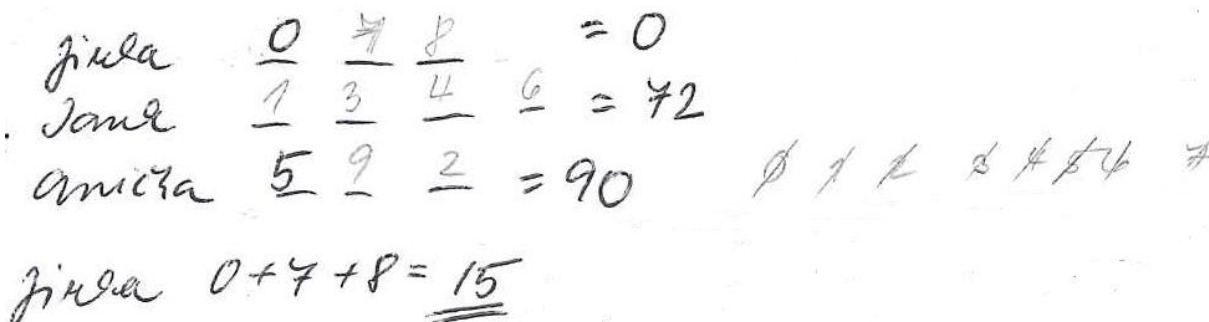 Jirka 0 7 8 = 0
Jana 1 3 4 6 = 72
Anička 5 9 2 = 90 0 1 2 3 4 5 6 7
Jirka 0+7+8=15